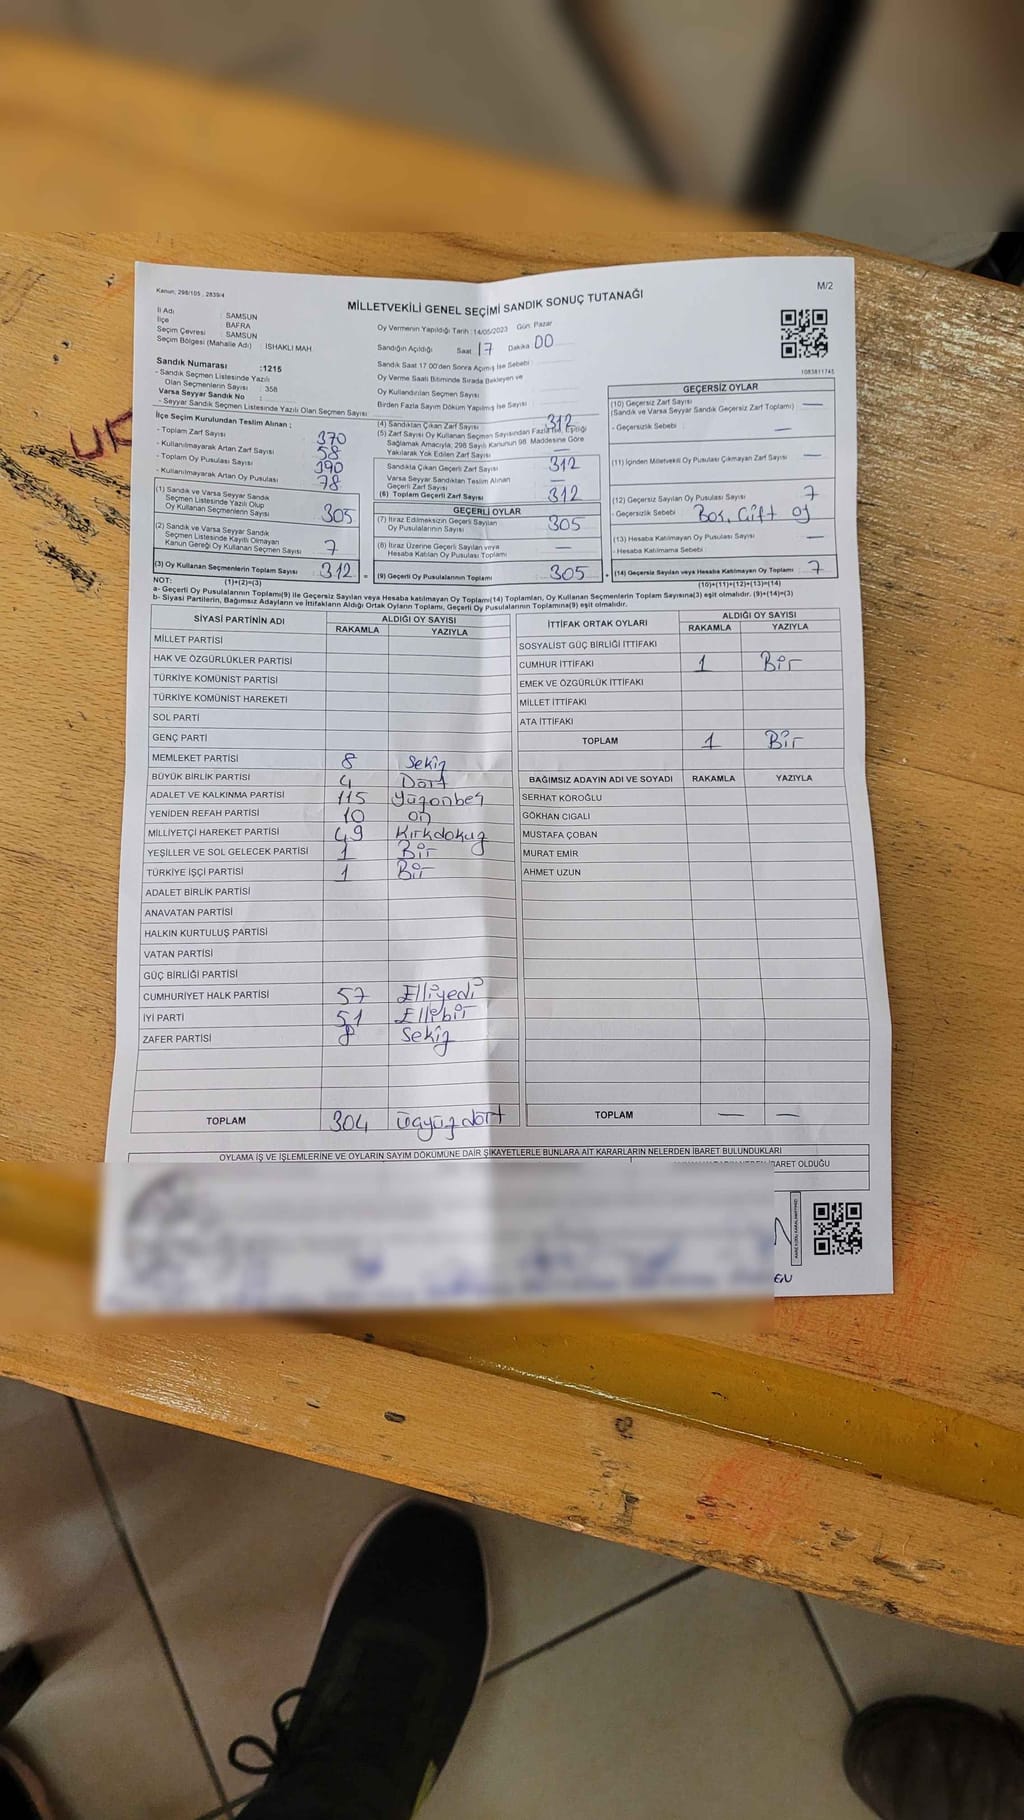 Kanun: 298/105 , 2839/4
M/2
MİLLETVEKİLİ GENEL SEÇİMİ SANDIK SONUÇ TUTANAĞI
İl Adı : SAMSUN
İlçe : BAFRA
Seçim Çevresi : SAMSUN
Seçim Bölgesi (Mahalle Adı) : İSHAKLI MAH
Oy Vermenin Yapıldığı Tarih : 14/05/2023 Gün: Pazar
Sandığın Açıldığı Saat 17 Dakika 00
Sandık Saat 17.00'den Sonra Açılmış İse Sebebi :
Oy Verme Saati Bitiminde Sırada Bekleyen ve
Oy Kullandırılan Seçmen Sayısı
Birden Fazla Sayım Döküm Yapılmış İse Sayısı :
1083811745
Sandık Numarası :1215
- Sandık Seçmen Listesinde Yazılı
Olan Seçmenlerin Sayısı : 358
Varsa Seyyar Sandık No :
- Seyyar Sandık Seçmen Listesinde Yazılı Olan Seçmen Sayısı
İlçe Seçim Kurulundan Teslim Alınan ;
- Toplam Zarf Sayısı 370
- Kullanılmayarak Artan Zarf Sayısı 58
- Toplam Oy Pusulası Sayısı 390
- Kullanılmayarak Artan Oy Pusulası 78
(1) Sandık ve Varsa Seyyar Sandık
Seçmen Listesinde Yazılı Olup
Oy Kullanan Seçmenlerin Sayısı 305
(2) Sandık ve Varsa Seyyar Sandık
Seçmen Listesinde Kayıtlı Olmayan
Kanun Gereği Oy Kullanan Seçmen Sayısı 7
(3) Oy Kullanan Seçmenlerin Toplam Sayısı 312 =
(4) Sandıktan Çıkan Zarf Sayısı 312
(5) Zarf Sayısı Oy Kullanan Seçmen Sayısından Fazla ise, Eşitliği
Sağlamak Amacıyla, 298 Sayılı Kanunun 98. Maddesine Göre
Yakılarak Yok Edilen Zarf Sayısı —
Sandıkta Çıkan Geçerli Zarf Sayısı 312
Varsa Seyyar Sandıktan Teslim Alınan
Geçerli Zarf Sayısı —
(6) Toplam Geçerli Zarf Sayısı 312
GEÇERLİ OYLAR
(7) İtiraz Edilmeksizin Geçerli Sayılan
Oy Pusulalarının Sayısı 305
(8) İtiraz Üzerine Geçerli Sayılan veya
Hesaba Katılan Oy Pusulası Toplamı —
(9) Geçerli Oy Pusulalarının Toplamı 305 +
GEÇERSİZ OYLAR
(10) Geçersiz Zarf Sayısı —
(Sandık ve Varsa Seyyar Sandık Geçersiz Zarf Toplamı)
- Geçersizlik Sebebi : —
(11) İçinden Milletvekili Oy Pusulası Çıkmayan Zarf Sayısı —
(12) Geçersiz Sayılan Oy Pusulası Sayısı 7
- Geçersizlik Sebebi : Boş, Çift oy
(13) Hesaba Katılmayan Oy Pusulası Sayısı —
- Hesaba Katılmama Sebebi :
(14) Geçersiz Sayılan veya Hesaba Katılmayan Oy Toplamı 7
NOT: (1)+(2)=(3) (10)+(11)+(12)+(13)=(14)
a- Geçerli Oy Pusulalarının Toplamı(9) ile Geçersiz Sayılan veya Hesaba katılmayan Oy Toplamı(14) Toplamları, Oy Kullanan Seçmenlerin Toplam Sayısına(3) eşit olmalıdır. (9)+(14)=(3)
b- Siyasi Partilerin, Bağımsız Adayların ve İttifakların Aldığı Ortak Oyların Toplamı, Geçerli Oy Pusulalarının Toplamına(9) eşit olmalıdır.
SİYASİ PARTİNİN ADI ALDIĞI OY SAYISI
RAKAMLA YAZIYLA
MİLLET PARTİSİ
HAK VE ÖZGÜRLÜKLER PARTİSİ
TÜRKİYE KOMÜNİST PARTİSİ
TÜRKİYE KOMÜNİST HAREKETİ
SOL PARTİ
GENÇ PARTİ
MEMLEKET PARTİSİ 8 Sekiz
BÜYÜK BİRLİK PARTİSİ 4 Dört
ADALET VE KALKINMA PARTİSİ 115 Yüzonbeş
YENİDEN REFAH PARTİSİ 10 on
MİLLİYETÇİ HAREKET PARTİSİ 49 Kırkdokuz
YEŞİLLER VE SOL GELECEK PARTİSİ 1 Bir
TÜRKİYE İŞÇİ PARTİSİ 1 Bir
ADALET BİRLİK PARTİSİ
ANAVATAN PARTİSİ
HALKIN KURTULUŞ PARTİSİ
VATAN PARTİSİ
GÜÇ BİRLİĞİ PARTİSİ
CUMHURİYET HALK PARTİSİ 57 Elliyedi
İYİ PARTİ 51 Ellibir
ZAFER PARTİSİ 8 Sekiz
TOPLAM 304 üçyüzdört
İTTİFAK ORTAK OYLARI ALDIĞI OY SAYISI
RAKAMLA YAZIYLA
SOSYALİST GÜÇ BİRLİĞİ İTTİFAKI
CUMHUR İTTİFAKI 1 Bir
EMEK VE ÖZGÜRLÜK İTTİFAKI
MİLLET İTTİFAKI
ATA İTTİFAKI
TOPLAM 1 Bir
BAĞIMSIZ ADAYIN ADI VE SOYADI RAKAMLA YAZIYLA
SERHAT KÖROĞLU
GÖKHAN CIGALI
MUSTAFA ÇOBAN
MURAT EMİR
AHMET UZUN
TOPLAM — —
OYLAMA İŞ VE İŞLEMLERİNE VE OYLARIN SAYIM DÖKÜMÜNE DAİR ŞİKAYETLERLE BUNLARA AİT KARARLARIN NELERDEN İBARET BULUNDUKLARI
İBARET OLDUĞU